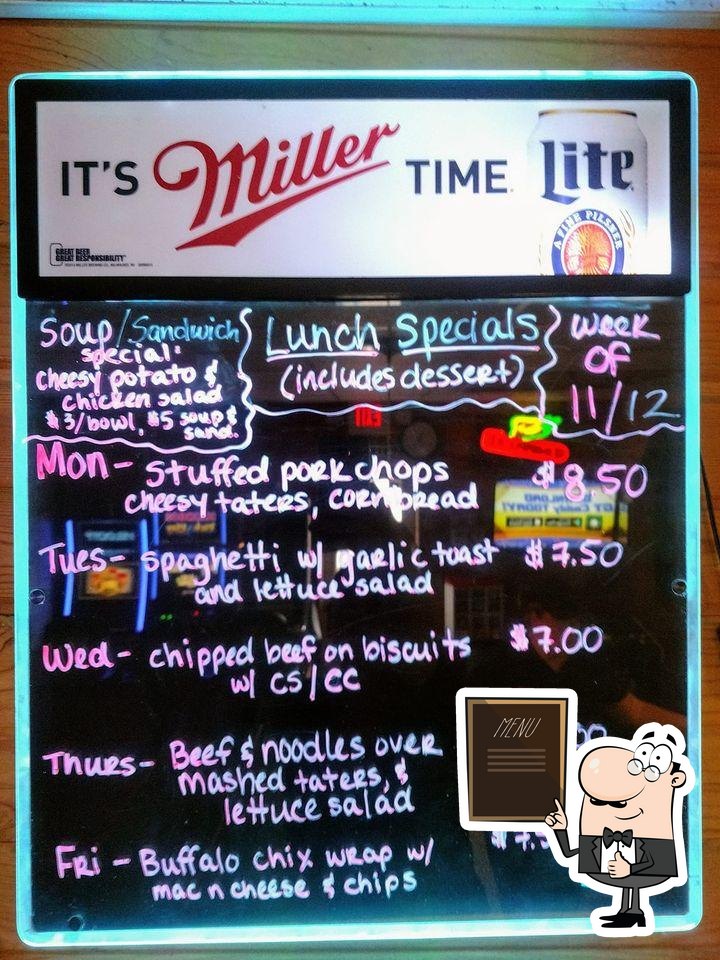 IT'S Miller TIME
Lite
A FINE PILSNER
GREAT BEER
GREAT RESPONSIBILITY
Soup/Sandwich
special:
cheesy potato &
chicken salad
$3/bowl, $5 soup &
sand.
Lunch Specials
(includes dessert)
week
of
11/12
Mon - stuffed pork chops $8.50
cheesy taters, cornbread
Tues - spaghetti w/ garlic toast $7.50
and lettuce salad
Wed - chipped beef on biscuits $7.00
w/ CS/CC
Thurs - Beef & noodles over
mashed taters, &
lettuce salad
Fri - Buffalo chix wrap w/
mac n cheese & chips
MENU